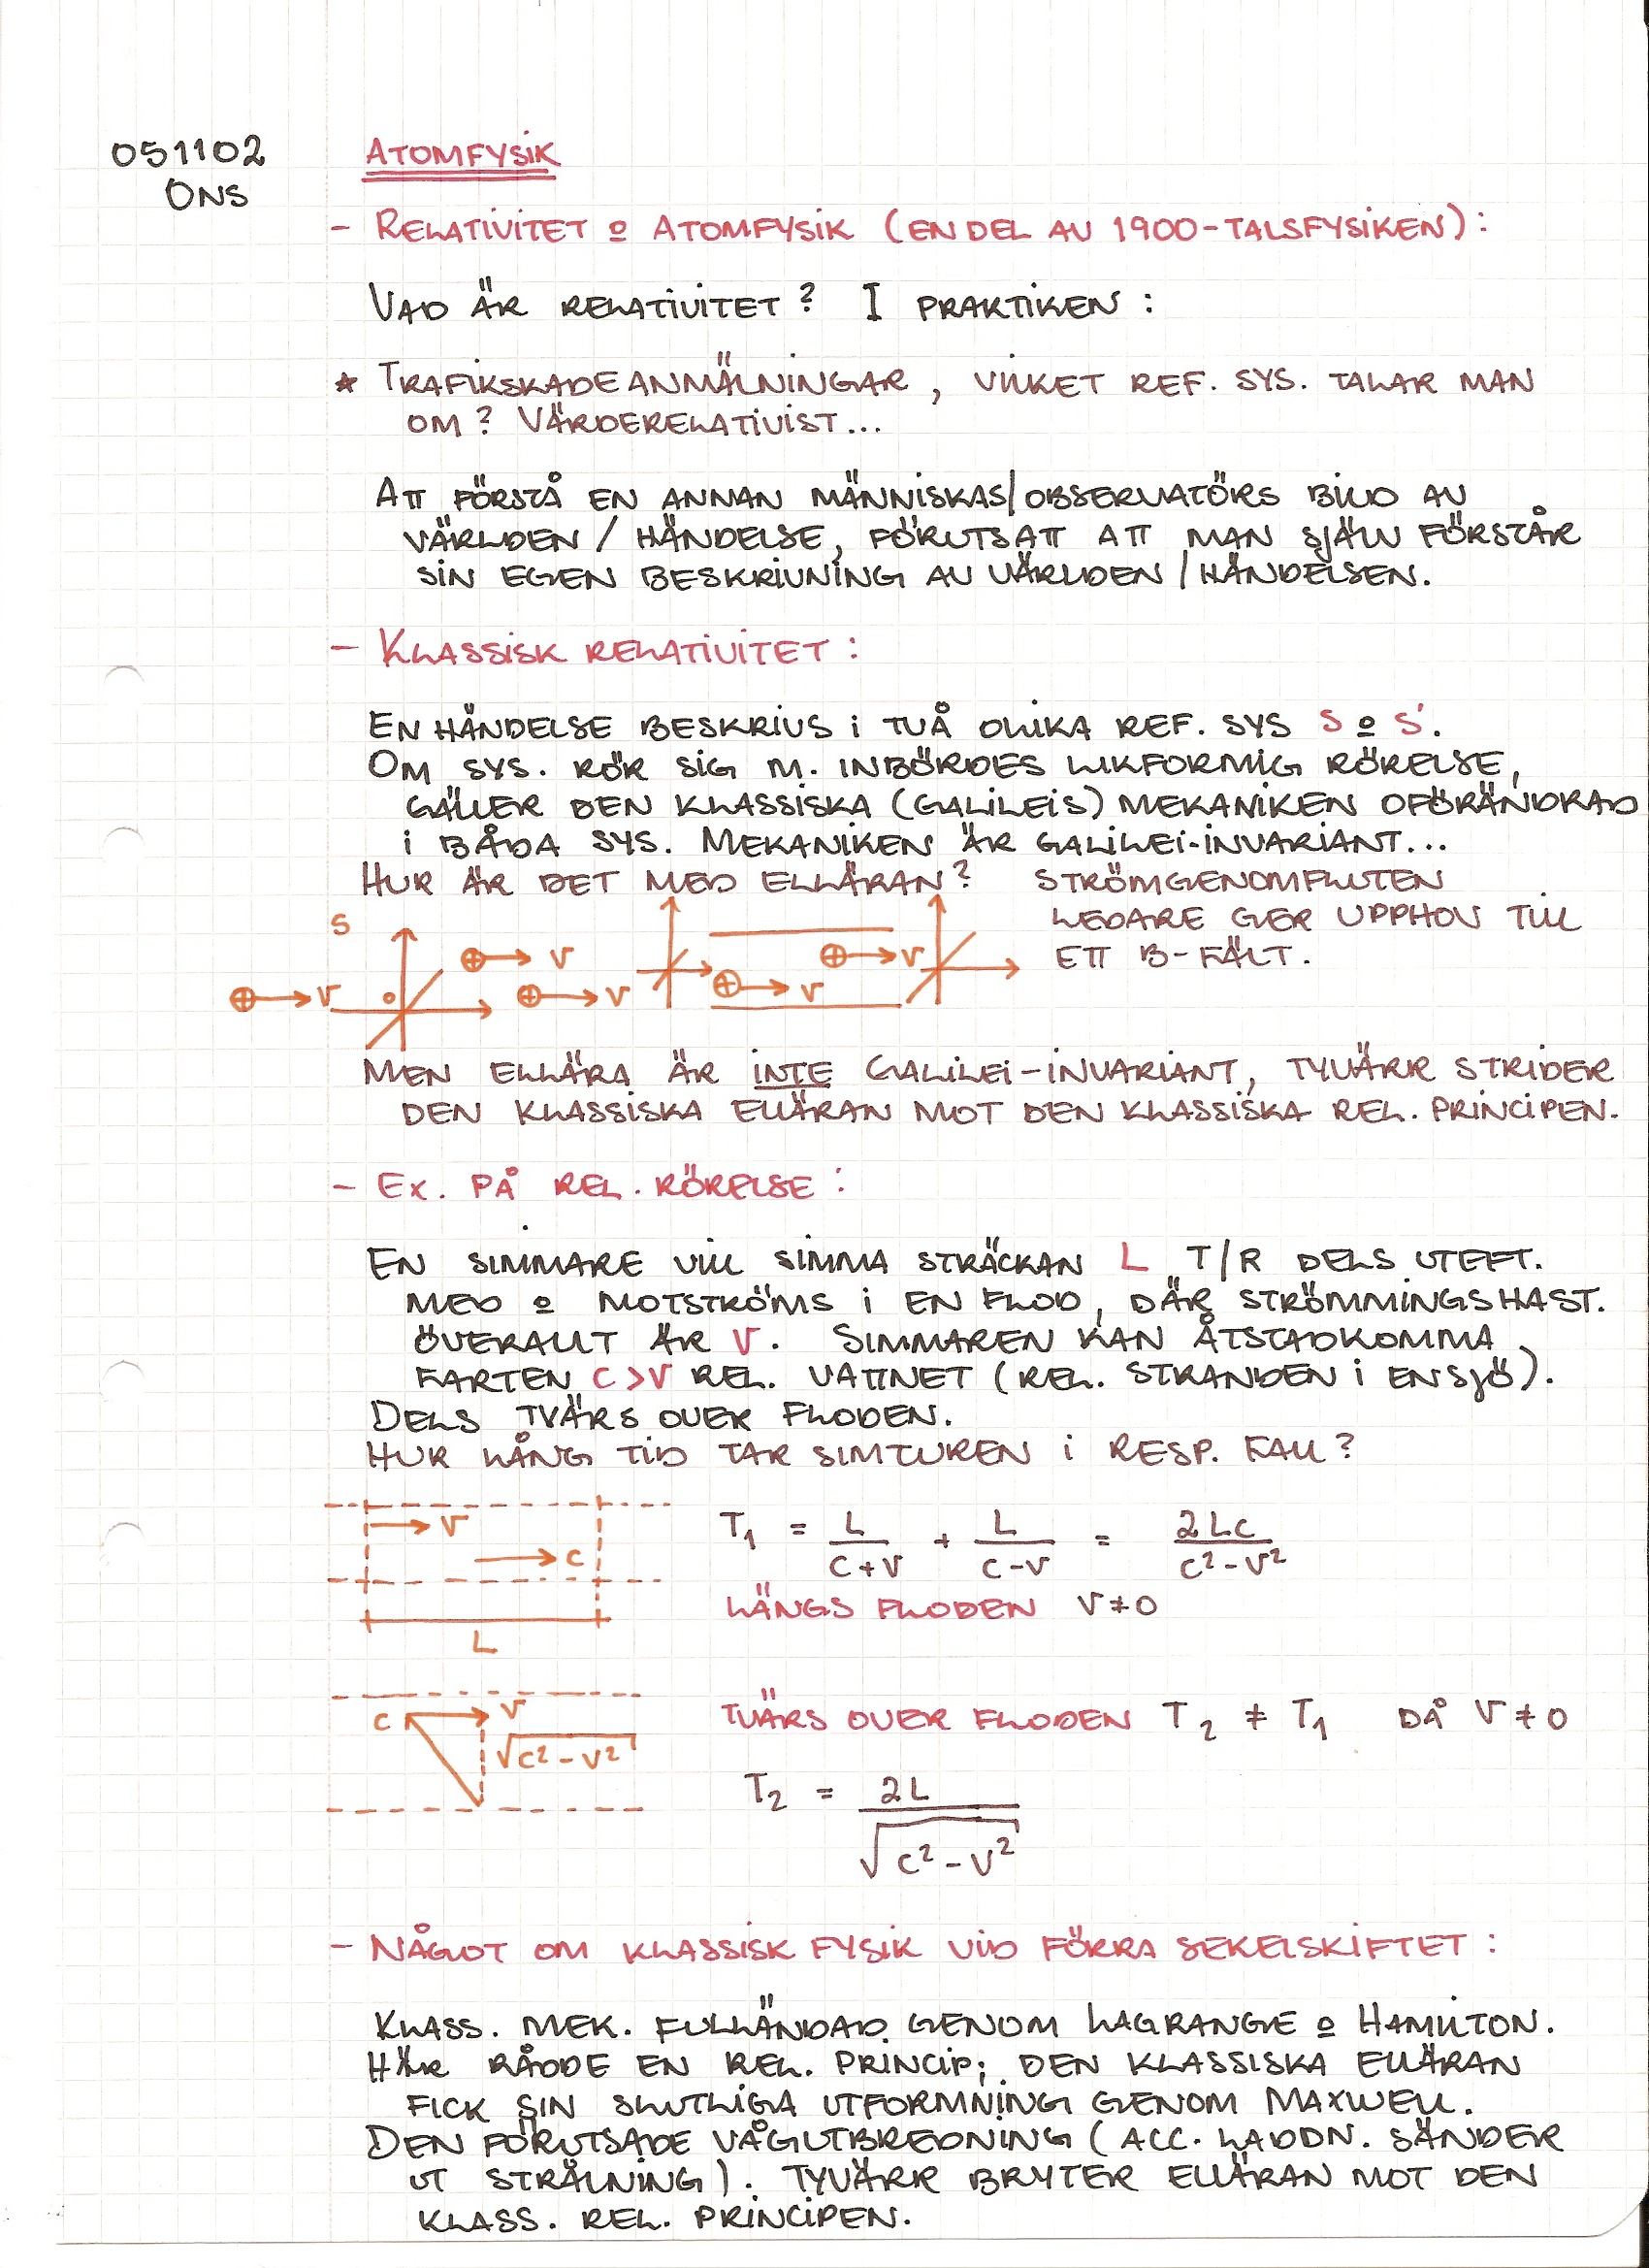 051102
ONS
ATOMFYSIK
- RELATIVITET o ATOMFYSIK (EN DEL AV 1900-TALSFYSIKEN):
VAD ÄR RELATIVITET? I PRAKTIKEN:
* TRAFIKSKADEANMÄLNINGAR, VILKET REF. SYS. TALAR MAN
OM? VÄRDERELATIVIST...
ATT FÖRSTÅ EN ANNAN MÄNNISKAS/OBSERVATÖRS BILD AV
VÄRLDEN / HÄNDELSE, FÖRUTSATT ATT MAN SJÄLV FÖRSTÅR
SIN EGEN BESKRIVNING AV VÄRLDEN / HÄNDELSEN.
- KLASSISK RELATIVITET:
EN HÄNDELSE BESKRIVS I TVÅ OLIKA REF. SYS S o S'.
OM SYS. RÖR SIG M. INBÖRDES LIKFORMIG RÖRELSE,
GÄLLER DEN KLASSISKA (GALILEIS) MEKANIKEN OFÖRÄNDRAD
I BÅDA SYS. MEKANIKEN ÄR GALILEI-INVARIANT...
HUR ÄR DET MED ELLÄRAN? STRÖMGENOMFLUTEN
LEDARE GER UPPHOV TILL
ETT B-FÄLT.
S
⊕→ V ⊕→ V
⊕→ V o ⊕→ V ⊕→ V
MEN ELLÄRA ÄR INTE GALILEI-INVARIANT, TYVÄRR STRIDER
DEN KLASSISKA ELLÄRAN MOT DEN KLASSISKA REL. PRINCIPEN.
- EX. PÅ REL. RÖRELSE:
EN SIMMARE VILL SIMMA STRÄCKAN L T/R DELS UTEFT.
MED o MOTSTRÖMS I EN FLOD, DÄR STRÖMMINGSHAST.
ÖVERALLT ÄR V. SIMMAREN KAN ÅTSTADKOMMA
FARTEN C>V REL. VATTNET (REL. STRANDEN I EN SJÖ).
DELS TVÄRS OVER FLODEN.
HUR LÅNG TID TAR SIMTUREN I RESP. FALL?
V
C
L
T₁ = L/(C+V) + L/(C-V) = 2LC/(C²-V²)
LÄNGS FLODEN V≠0
C V
√(C²-V²)
TVÄRS OVER FLODEN T₂ ≠ T₁ DÅ V≠0
T₂ = 2L/√(C²-V²)
- NÅGOT OM KLASSISK FYSIK VID FÖRRA SEKELSKIFTET:
KLASS. MEK. FULLÄNDAD GENOM LAGRANGE o HAMILTON.
HÄR RÅDDE EN REL. PRINCIP; DEN KLASSISKA ELLÄRAN
FICK SIN SLUTLIGA UTFORMNING GENOM MAXWELL.
DEN FÖRUTSADE VÅGUTBREDNING (ACC. LADDN. SÄNDER
UT STRÅLNING). TYVÄRR BRYTER ELLÄRAN MOT DEN
KLASS. REL. PRINCIPEN.